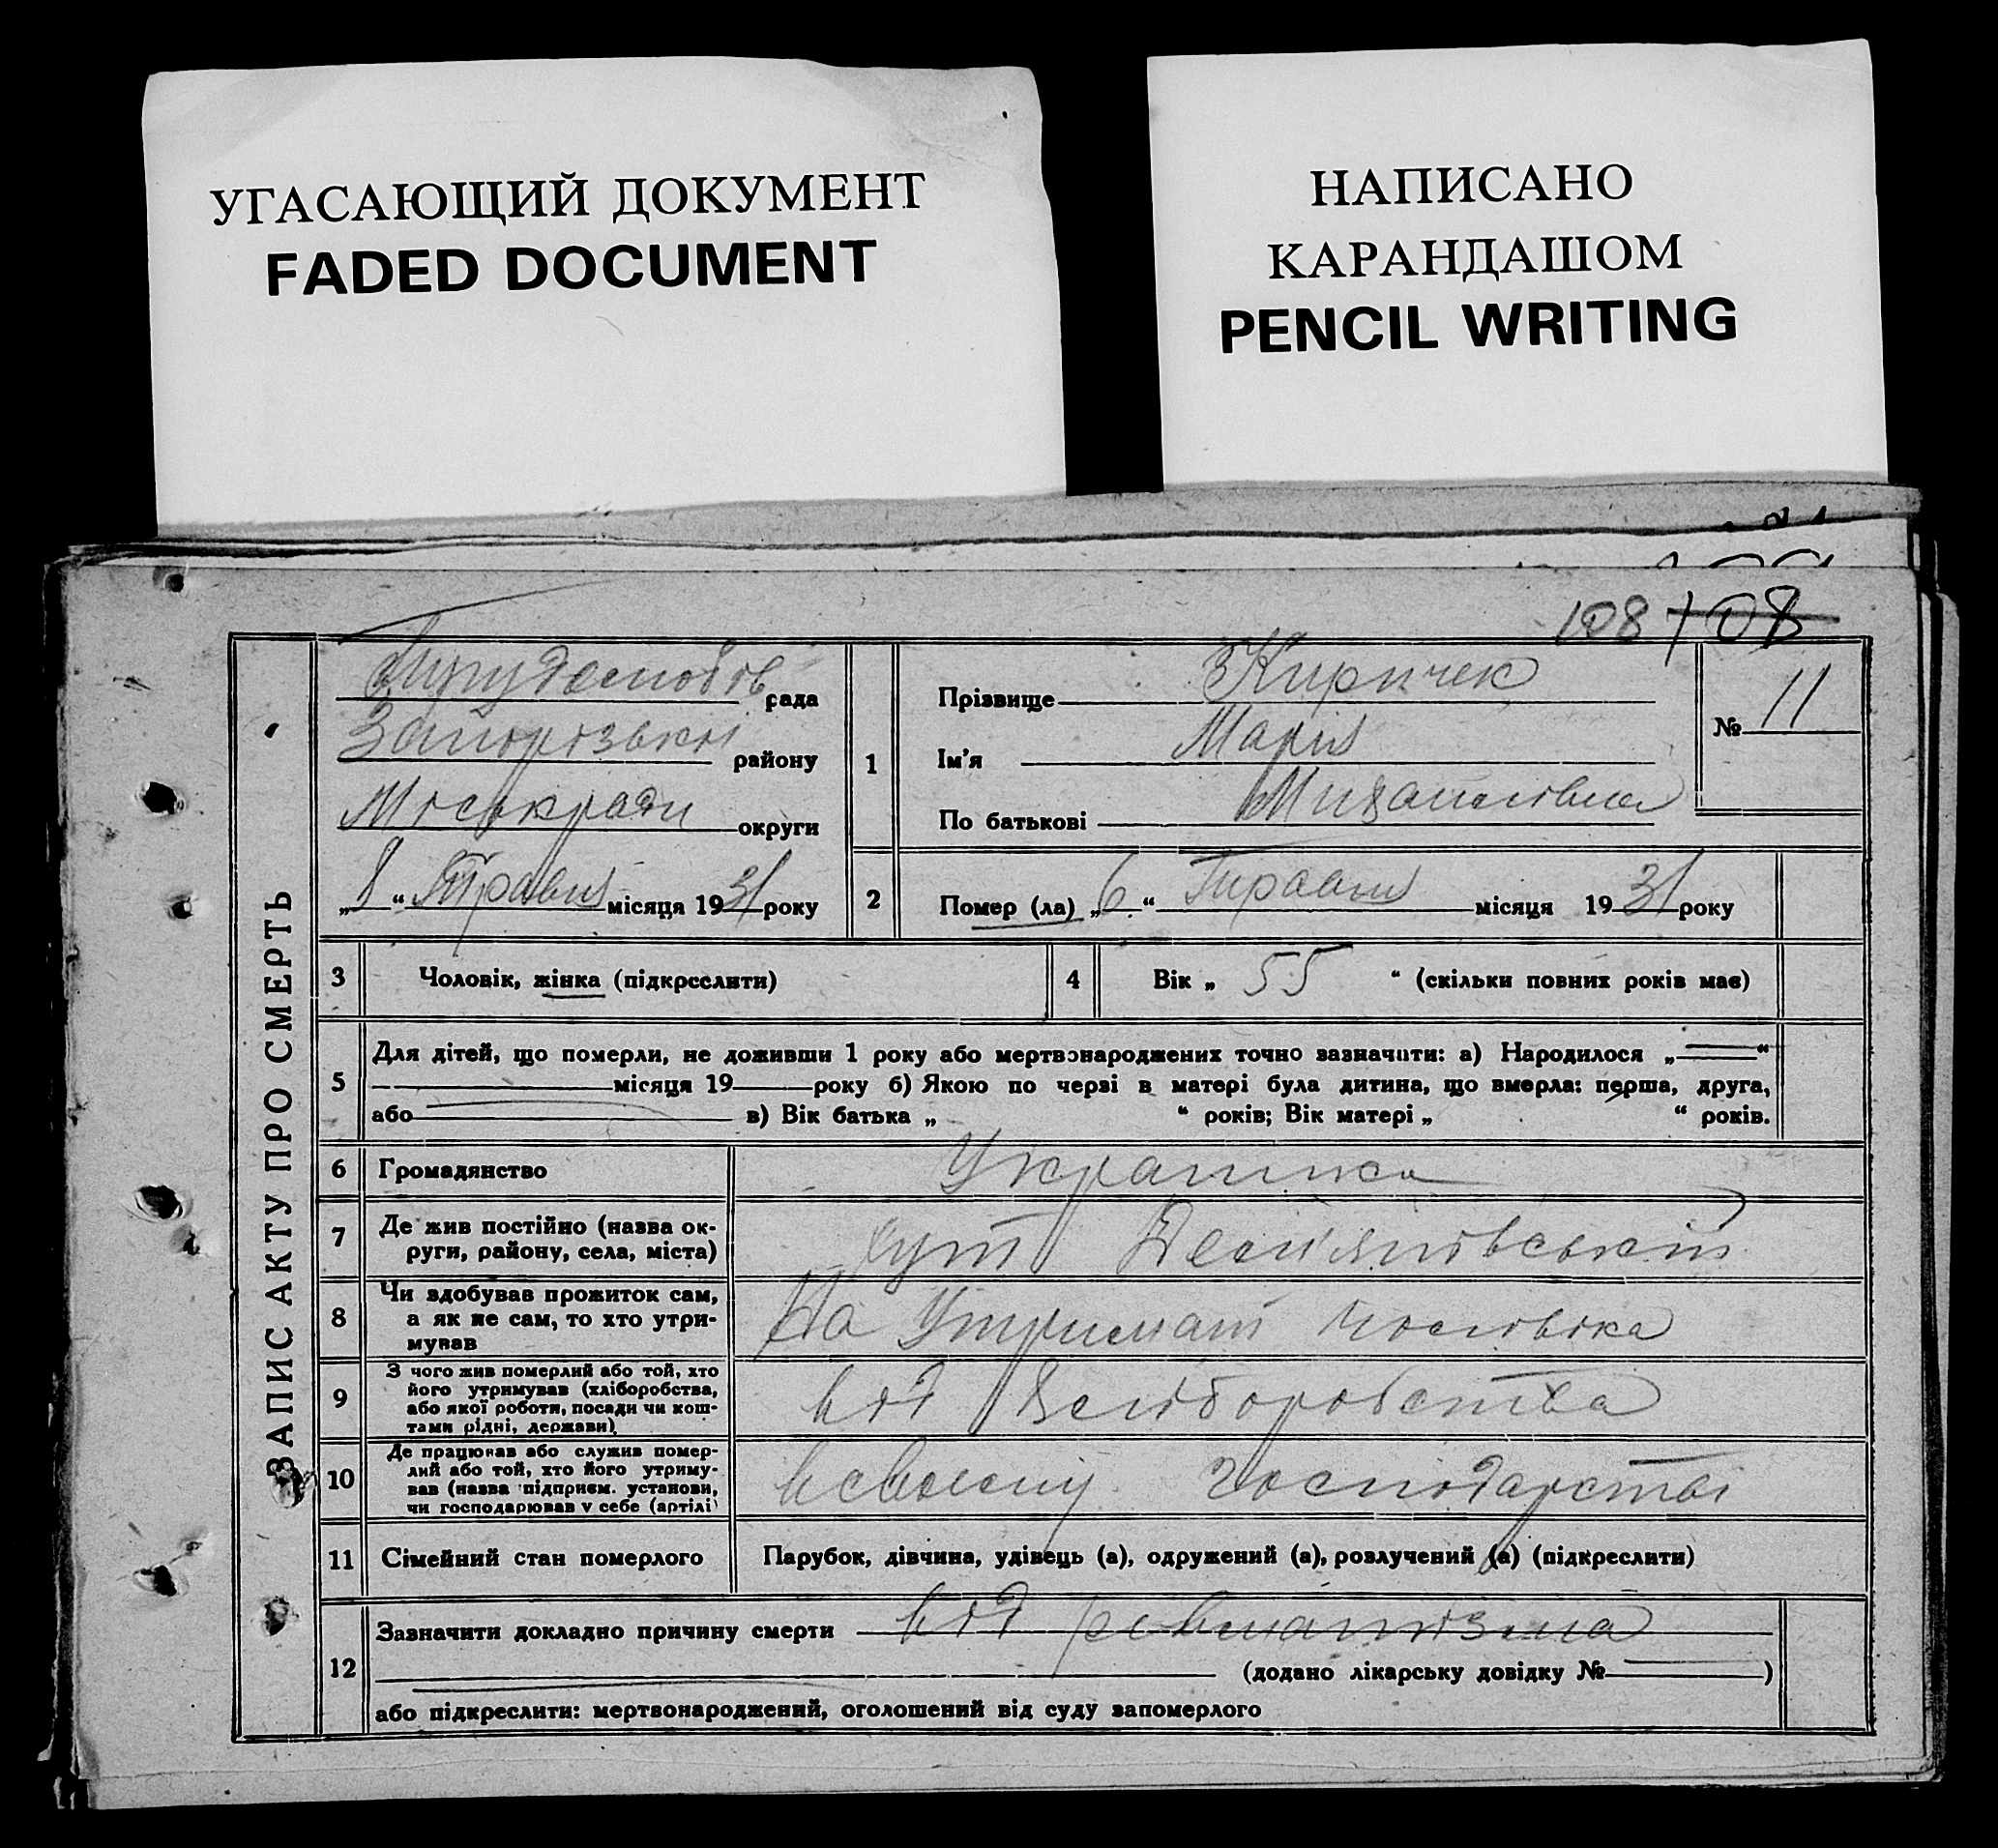 УГАСАЮЩИЙ ДОКУМЕНТ
FADED DOCUMENT
НАПИСАНО
КАРАНДАШОМ
PENCIL WRITING
108 108
ЗАПИС АКТУ ПРО СМЕРТЬ
рада
Запорізької району
Міськради округи
„8“ Травня місяця 1931 року
1
Прізвище Киричек
Ім'я Марія
По батькові Михайлівна
№ 11
2
Помер (ла) „6“ Травня місяця 1931 року
3 Чоловік, жінка (підкреслити)
4 Вік „55“ (скільки повних років має)
5
Для дітей, що померли, не доживши 1 року або мертвонароджених точно зазначити: а) Народилося „ “
місяця 19 року б) Якою по черзі в матері була дитина, що вмерла: перша, друга,
або в) Вік батька „ “ років; Вік матері „ “ років.
6 Громадянство Украінка
7 Де жив постійно (назва ок-
руги, району, села, міста)
хут
8 Чи здобував прожиток сам,
а як не сам, то хто утри-
мував
На Утримані чоловіка
9 З чого жив померлий або той, хто
його утримував (хліборобства,
або якої роботи, посади чи кош-
тами рідні, держави)
від Хліборобства
10 Де працював або служив помер-
лий або той, хто його утриму-
вав (назва підприєм. установи,
чи господарював у себе (артілі)
всвоєму господарстві
11 Сімейний стан померлого Парубок, дівчина, удівець (а), одружений (а), розлучений (а) (підкреслити)
12
Зазначити докладно причину смерти від ревматізма
(додано лікарську довідку № )
або підкреслити: мертвонароджений, оголошений від суду запомерлого